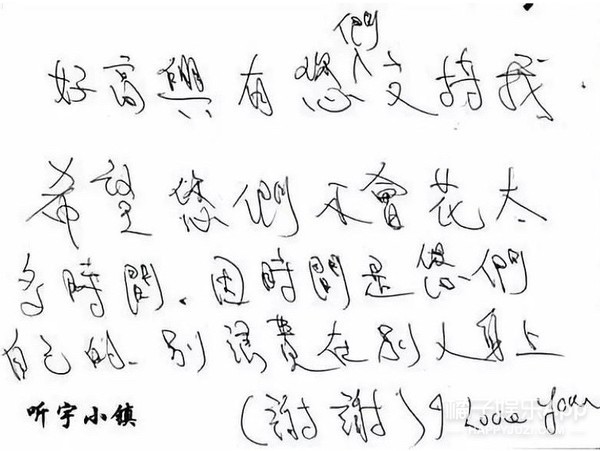 好高興有您們支持我.
希望您們不會花太
多時間.因時間是您們
自己的.别浪費在别人身上
(謝謝) I Love You
听宇小镇
橘子娱乐APP
HAPPYJUZI.COM